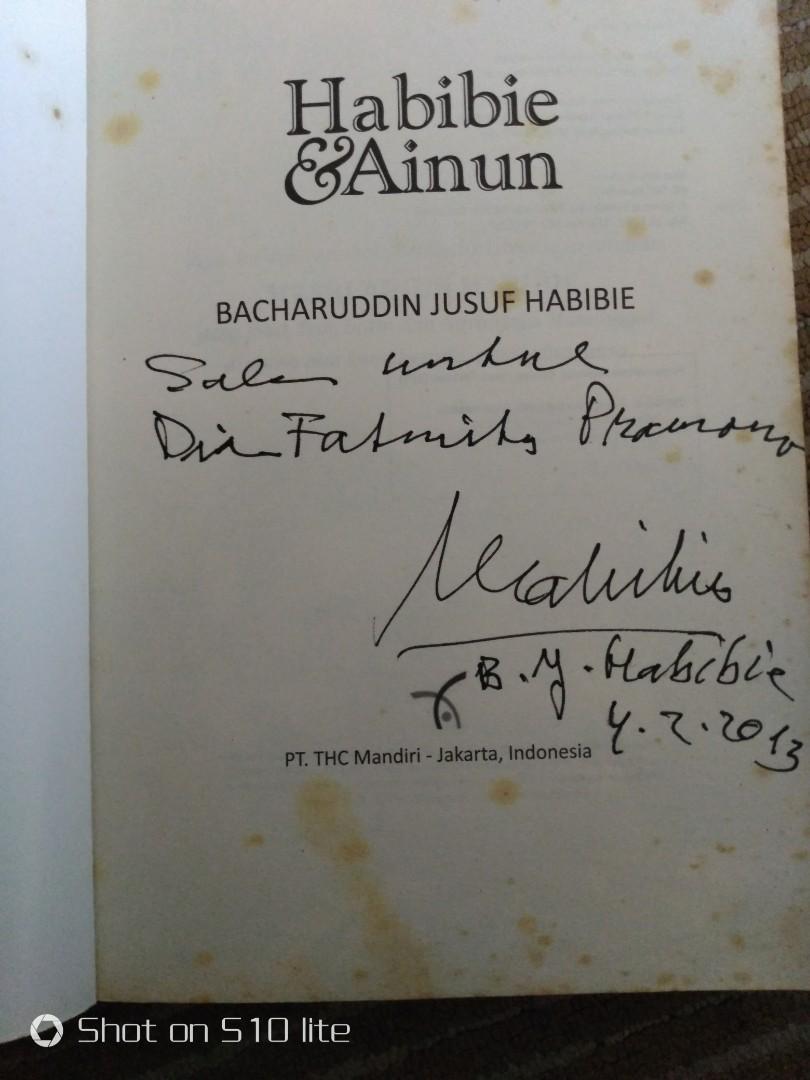 Habibie
& Ainun
BACHARUDDIN JUSUF HABIBIE
Salam untuk
Dian Fatmita Pramono
Habibie
B. J. Habibie
4.2.2013
PT. THC Mandiri - Jakarta, Indonesia
Shot on S10 lite